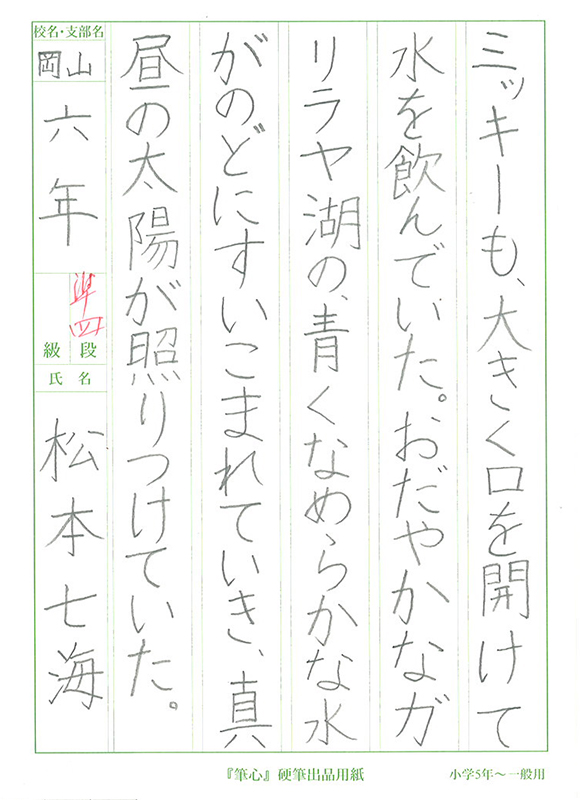 ミッキーも、大きく口を開けて
水を飲んでいた。おだやかなガ
リラヤ湖の、青くなめらかな水
がのどにすいこまれていき、真
昼の太陽が照りつけていた。
校名・支部名
岡山
六年
準四
級 段
氏名
松本七海
『筆心』硬筆出品用紙
小学5年～一般用